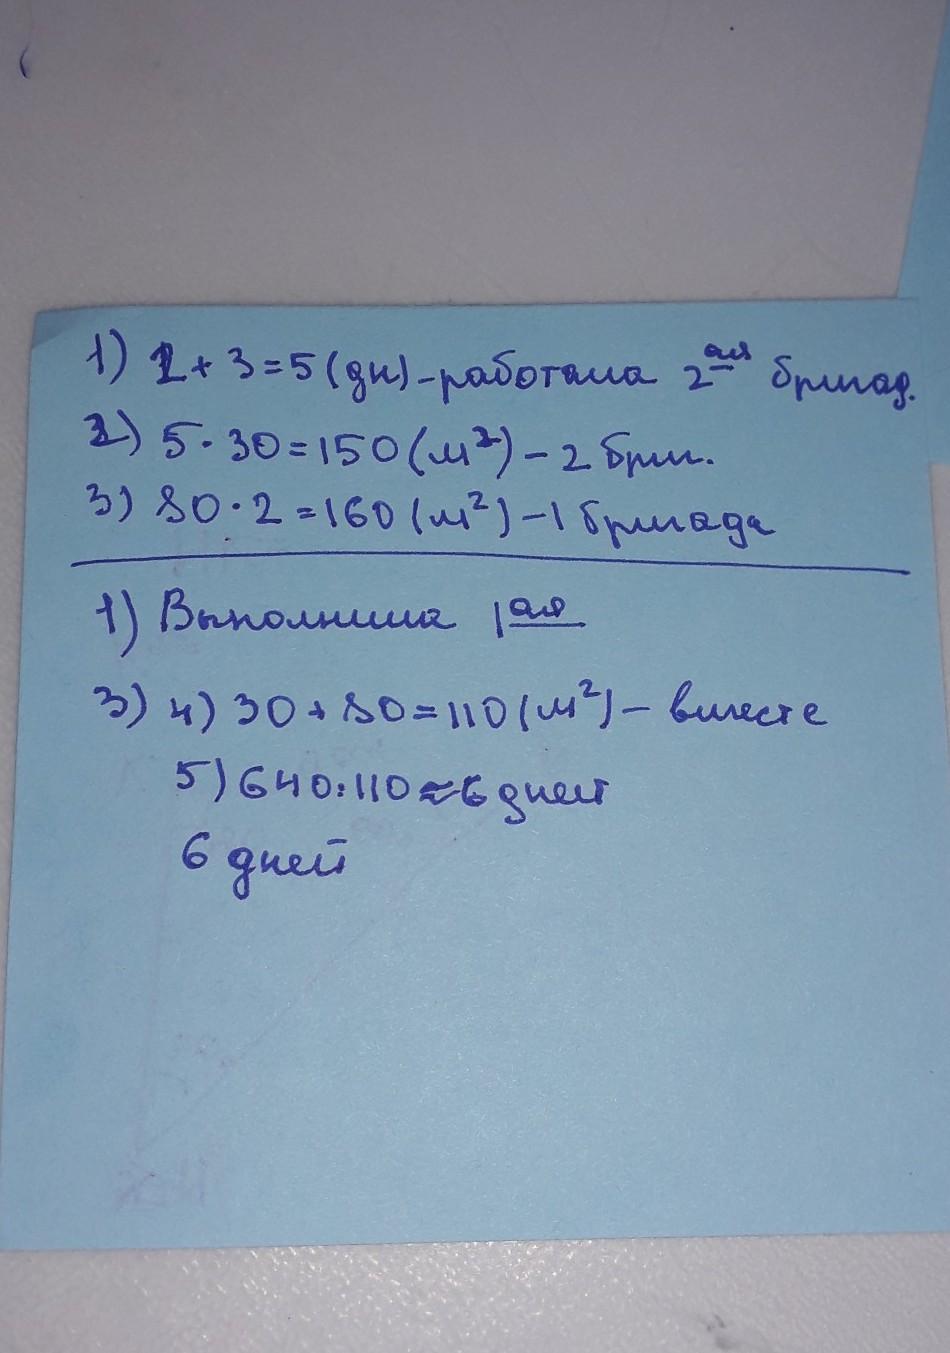 1) 2 + 3 = 5 (дн) - работала 2 ая бригад.
2) 5 · 30 = 150 (м²) - 2 бриг.
3) 80 · 2 = 160 (м²) - 1 бригада
1) Выполнила 1 ая
3) 4) 30 + 80 = 110 (м²) - вместе
5) 640 : 110 ≈ 6 дней
6 дней